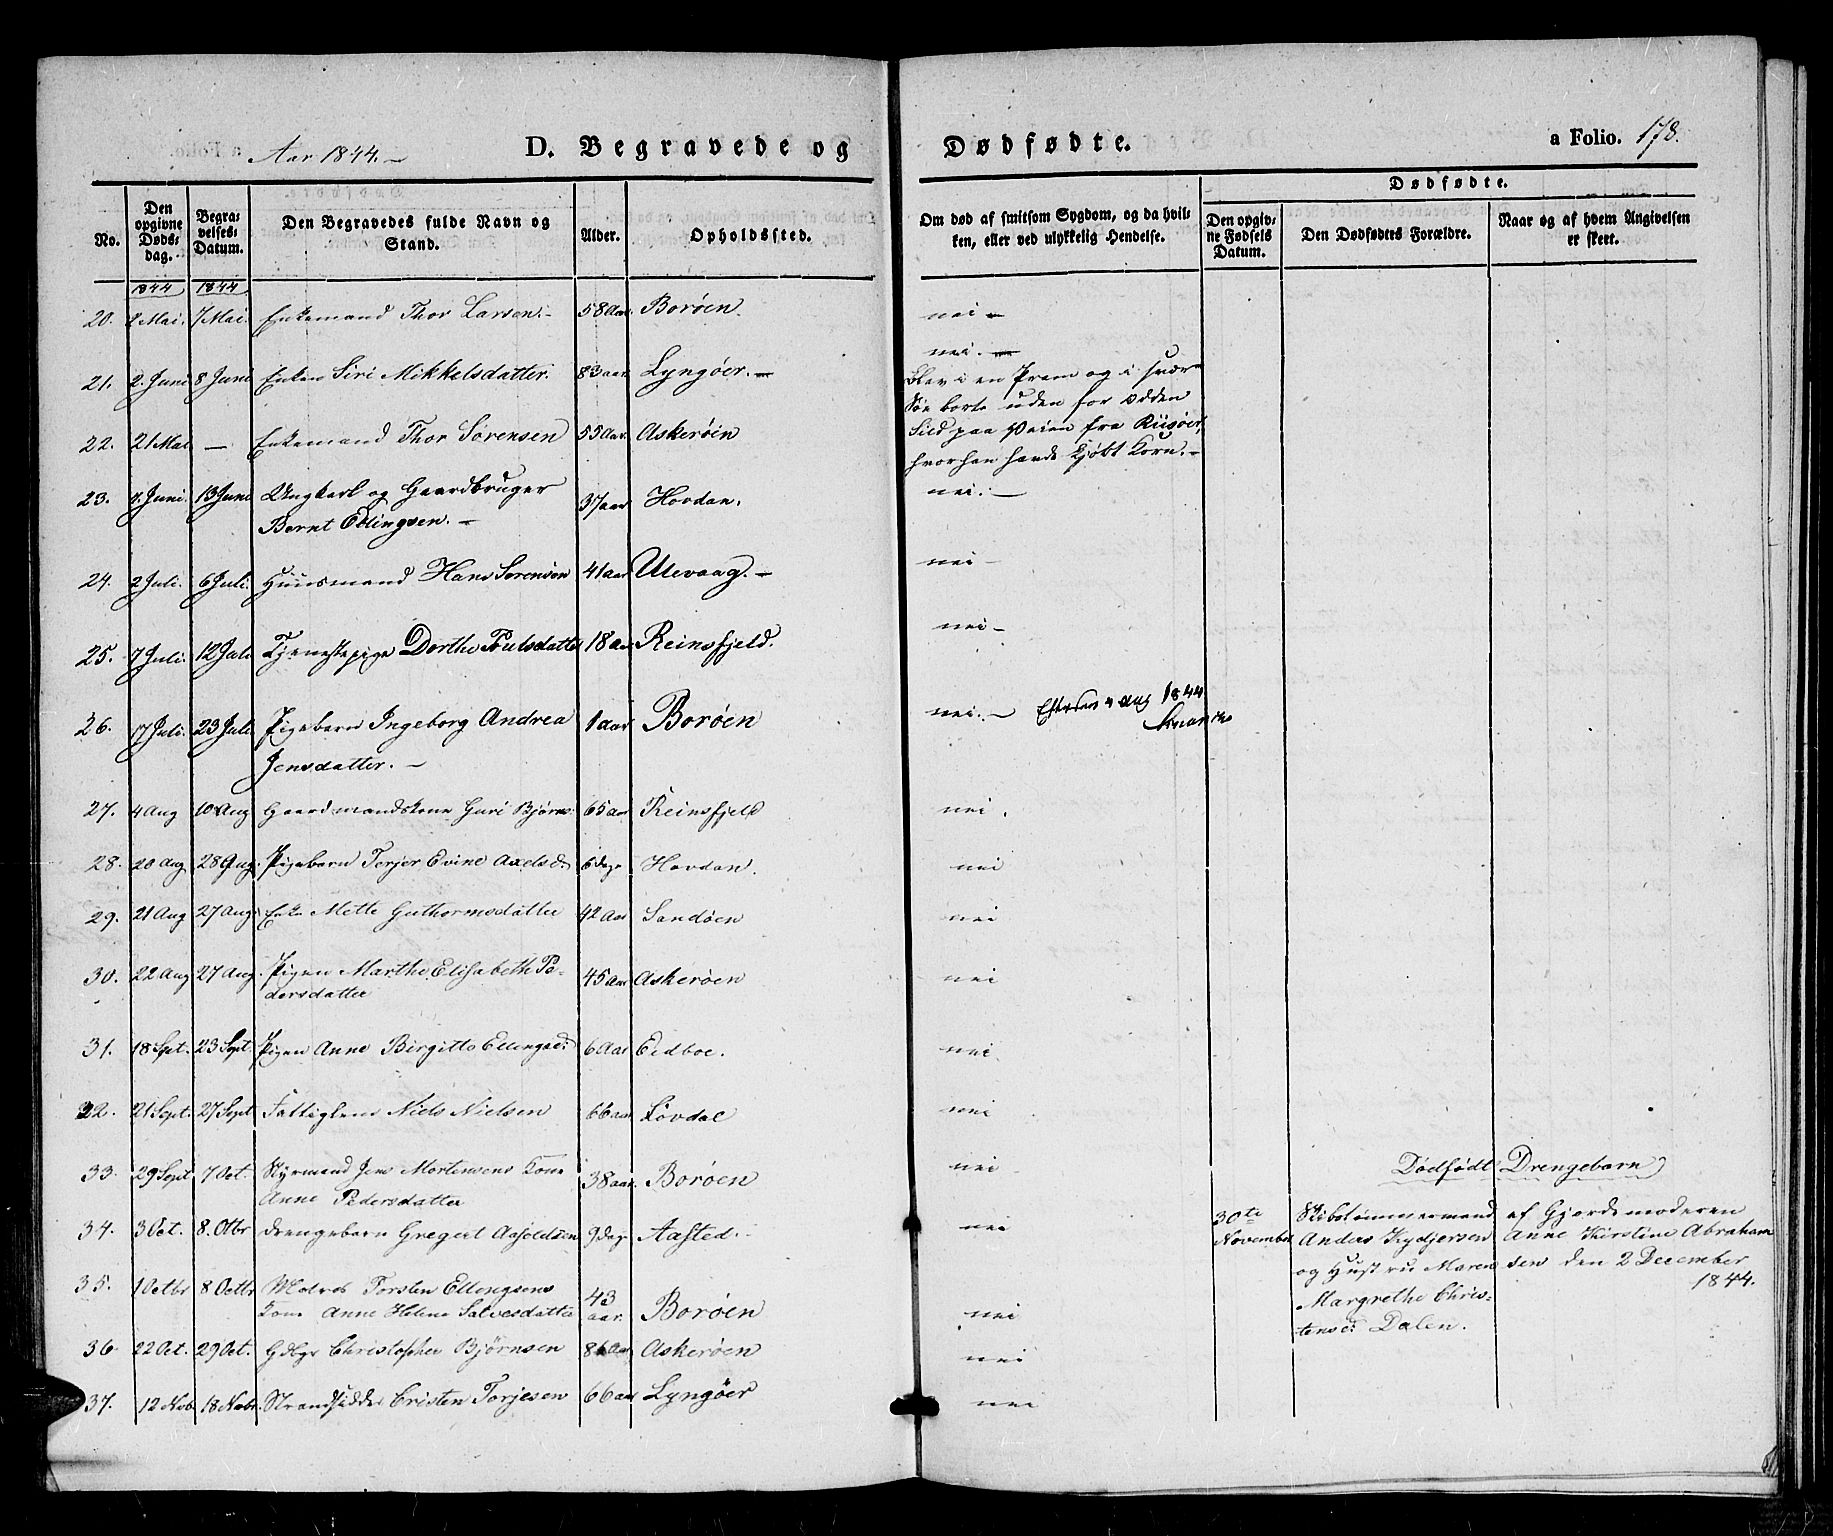 Aar 1844. –
D. Begravede og
Dødfødte.
a Folio. 178.
No.
Den opgivne Døds-dag.
Begra-velses-Datum.
Den Begravedes fulde Navn og Stand.
Alder.
Opholdssted.
Om død af smitsom Sygdom, og da hvil-
ken, eller ved ulykkelig Hendelse.
Dødfødte.
Den opgiv-ne Fødsels Datum.
Den Dødfødtes Forældre.
Naar og af hvem Angivelsen er skeet.
1844 1844
20. Mai. 7 Mai. Enkemand Thor Larsen. – 58 Aar. Borøen. nei –
21. 2. Juni 8 Juni Enken Siri Mikkelsdatter. 83 aar Lyngøer. – nei. –
22. 21 Mai – Enkemand Thor Sørensen 55 Aar. Askerøen
Blev i en Pram og i svær
Søe borte uden for Odden
Sild paa Veien fra Riisøer,
hvor han havde kjøbt Korn. –
23. Juni. 13 Juni Ungkarl og Gaardbruger 37 aar Hovdan. nei. –
Bernt Ellingsen. –
24. 2 Juli. 6 Juli. Huusmand Hans Sørensen 41 aar Ulevaag. – nei –
25. 7 Juli. 12 Juli Tjenestepige Dorthe Poulsdatter 18 aar Reinsfjeld. nei –
26. 17 Juli. 23 Juli Pigebarn Ingeborg Andrea 1 aar Borøen nei. – Aug 1844
Jensdatter. –
27. 4 Aug 10 Aug Gaardmandskone Guri Bjørns 65 aar Reinsfjeld nei.
28. 20 Aug 28 Aug. Pigebarn Terjer Evine Axelsd. 6 dage Hovdan. nei
29. 21 Aug 27 Aug Enke Mette Guthormsdatter 42 Aar Sandøen nei
30. 22 Aug 27 Aug. Pigen Marthe Elisabeth Pe-
dersdatter 45 Aar Askerøen nei
31. 18 Sept. 23 Sept. Pigen Anne Birgitte Ellingsd: 6 Aar Eidboe. nei
32. 21 Sept. 27 Sept Fattiglem Niels Nielsen 66 aar Løvdal nei
33. 29 Sept. 7 Oct. Styrmand Jens Mortensens Kone
Anne Pedersdatter 38 aar. Borøen nei
34. 3 Oct. 8. Otbr Drengebarn Gregert Aasoldsen 9 dage Aasted. nei
35. 1 Octbr 8 Octbr Matros Torsten Ellingsens
Kone Anne Helene Salvesdatter 43 aar. Borøen nei
36. 22 Oct. 29 Oct. Gdbgr Christopher Bjørnsen Aar Askerøen nei
37. 12 Nob 18 Nobr. Strandsidder Cristen Torjesen 66 aar Lyngøer nei
Dødfødt Drengebarn
30te
November
Skibstømmermand
Anders Kydjersen
og Hustru Maren
Margrethe Chris-
tensd: Dalen.
af Gjordemoderen
Anne Kirstine Abraham
sen den 2 December
1844.